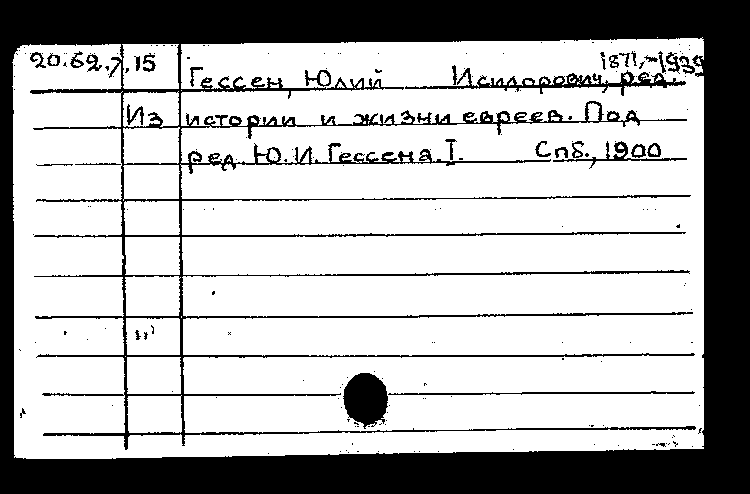 20.62.7.15 1871,-1939
Гессен, Юлий Исидорович, ред.
Из истории и жизни евреев. Под
ред. Ю.И. Гессена. I. Спб., 1900